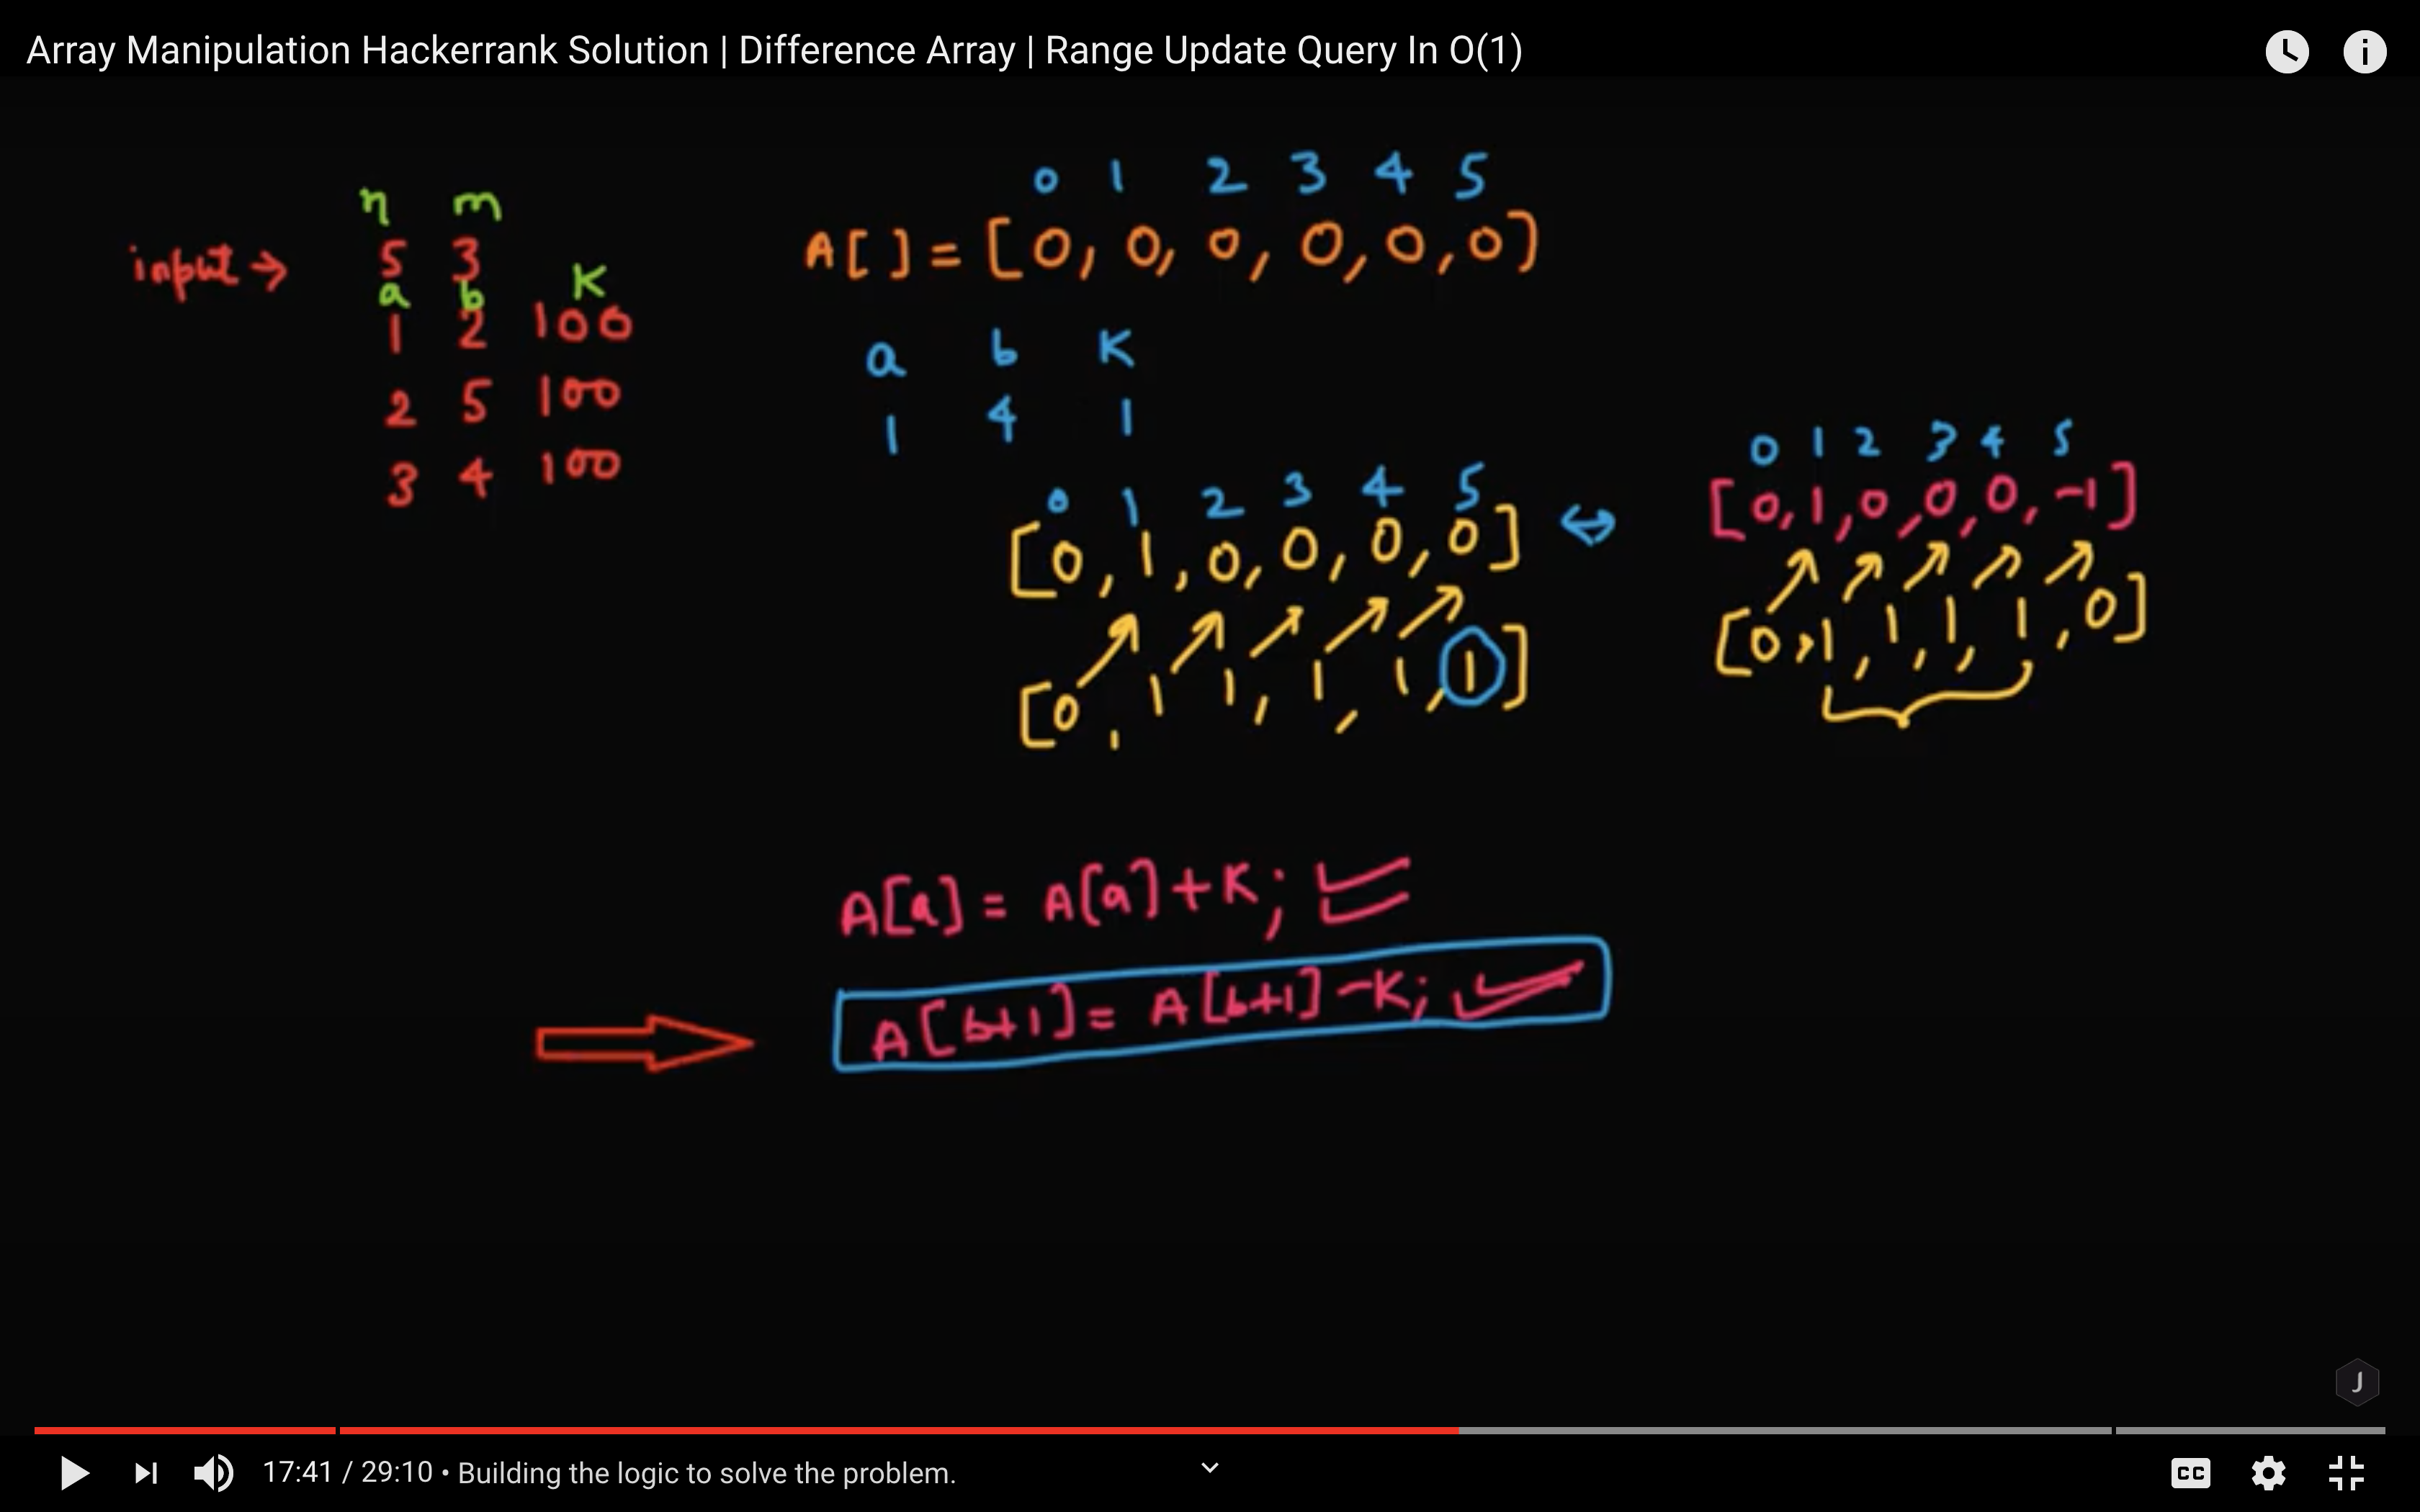 Array Manipulation Hackerrank Solution | Difference Array | Range Update Query In O(1)
n m
input → 5 3
a b K
1 2 100
2 5 100
3 4 100
0 1 2 3 4 5
A[ ] = [0, 0, 0, 0, 0, 0]
a b K
1 4 1
0 1 2 3 4 5
[0, 1, 0, 0, 0, 0] ↔
[0, 1 1, 1, 1, 1]
0 1 2 3 4 5
[0, 1, 0, 0, 0, -1]
[0, 1, 1, 1, 1, 0]
A[a] = A[a]+K;
A[b+1] = A[b+1] -K;
J
17:41 / 29:10 • Building the logic to solve the problem.
CC